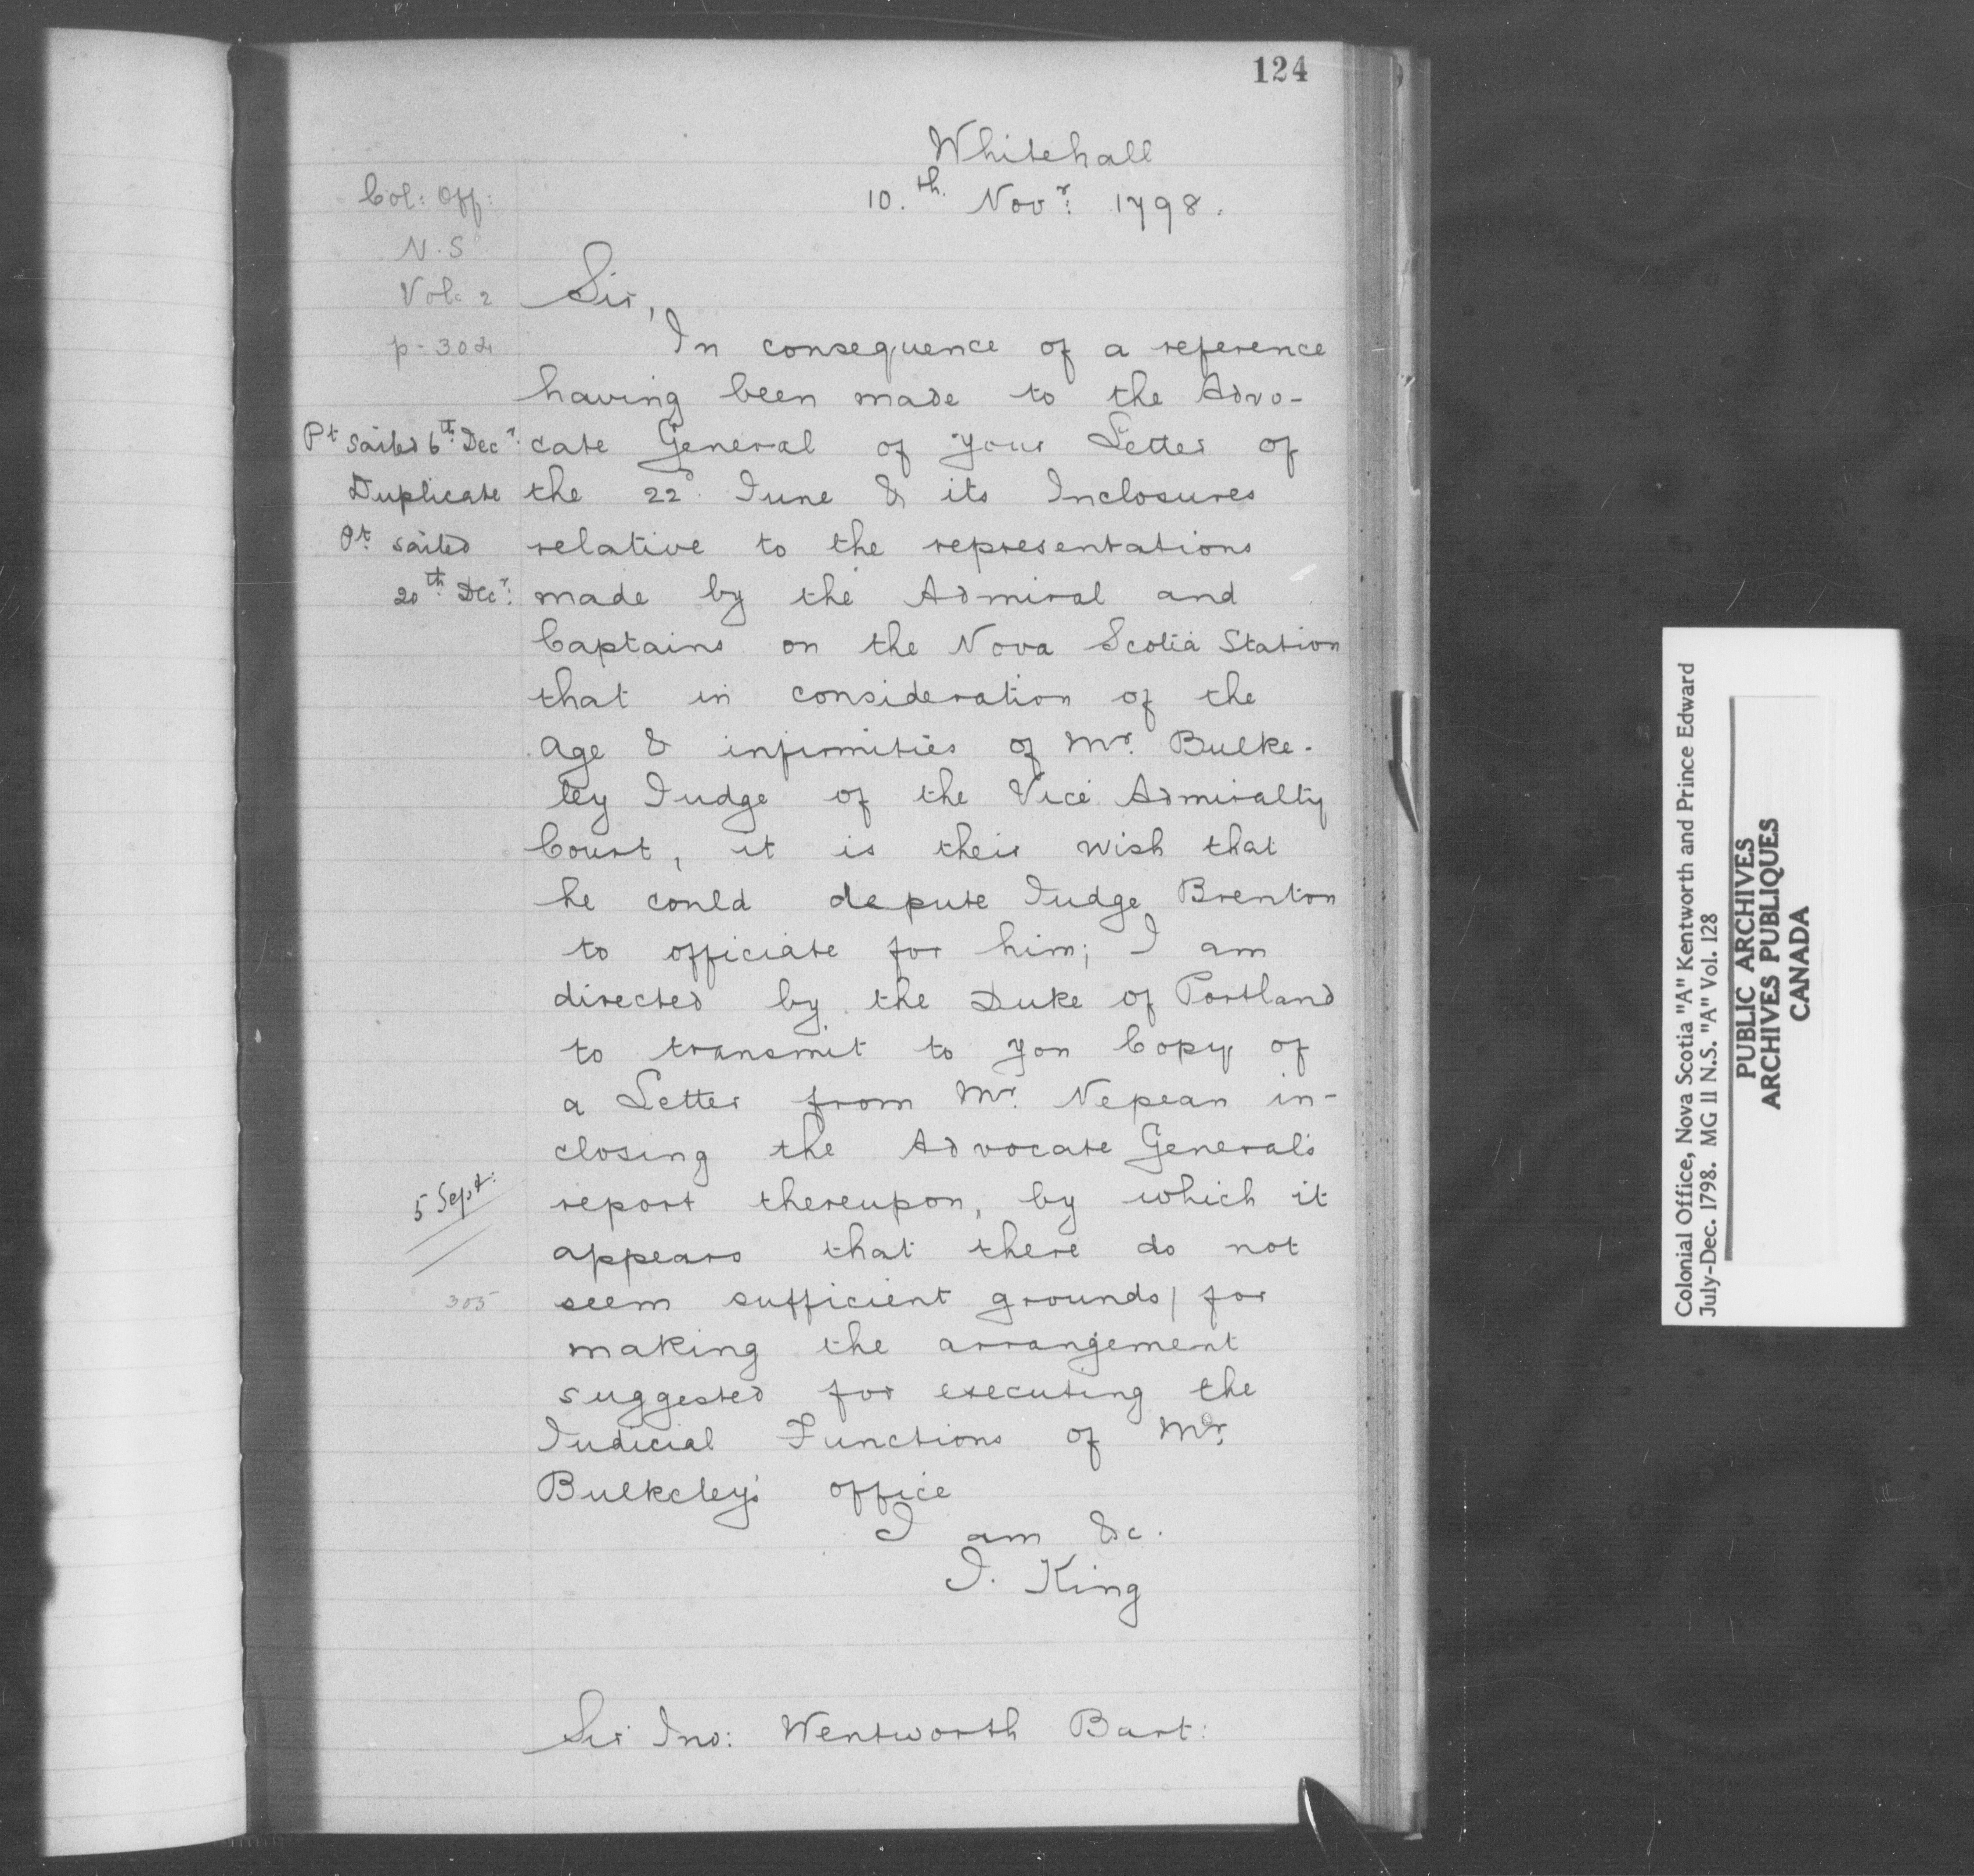 124
Whitehall
10.th Novr: 1798.
Col: Off:
N.S
Vol: 2
p-304
Sir,
In consequence of a reference
having been made to the Advo-
cate General of your Letter of
the 22d. June & its Inclosures
relative to the representations
made by the Admiral and
Captains on the Nova Scotia Station
that in consideration of the
age & infirmities of Mr. Bulke-
ley Judge of the Vice Admiralty
Court, it is their wish that
he could depute Judge Brenton
to officiate for him; I am
directed by the Duke of Portland
to transmit to you Copy of
a Letter from Mr. Nepean in-
closing the Advocate General's
report thereupon, by which it
appears that there do not
seem sufficient grounds for
making the arrangement
suggested for executing the
Judicial Functions of Mr.
Bulkeley's office
I am &c.
J. King
Sir Jno: Wentworth Bart:
Pt sailed 6th Decr:
Duplicate
Pt. sailed
20th Decr:
5 Sept:
305
Colonial Office, Nova Scotia "A" Kentworth and Prince Edward
July-Dec. 1798. MG II N.S. "A" Vol. 128
PUBLIC ARCHIVES
ARCHIVES PUBLIQUES
CANADA